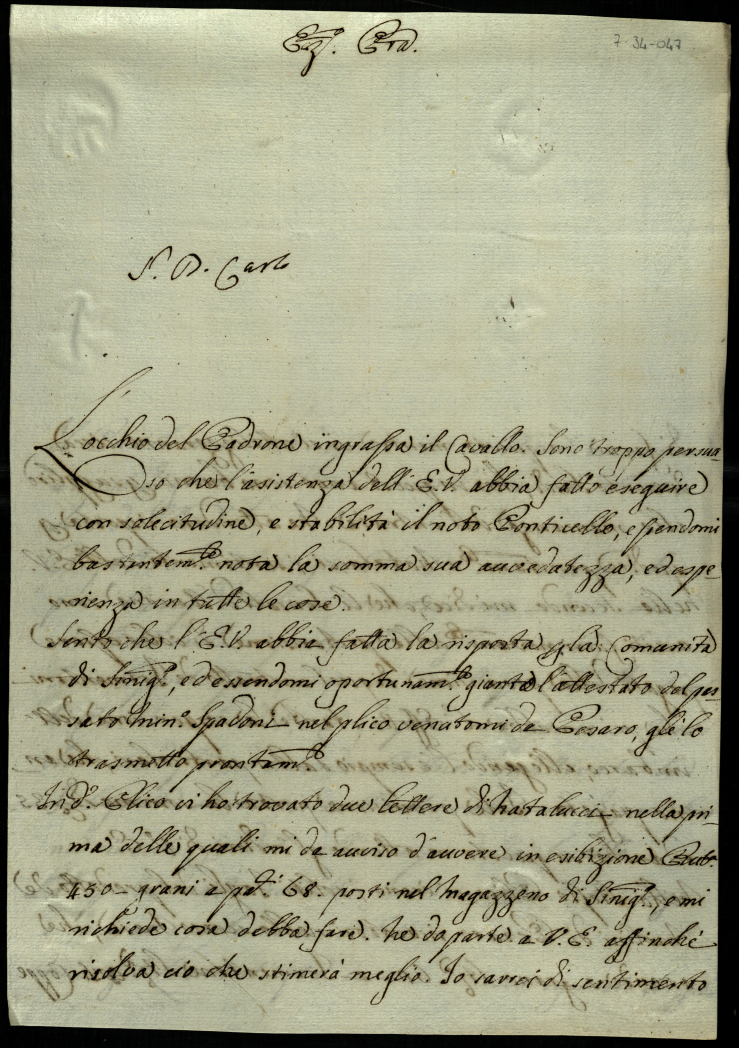 7-34-047
Ecc. Pron.
S. D. Carlo
L'occhio del Padrone ingrassa il Cavallo. Sono troppo persua
so che l'asistenza dell'E.V. abbia fatto eseguire
con solecitudine, e stabilità il noto Ponticello, essendomi
bastantem.te nota la somma sua accuratezza, ed espe-
rienza in tutte le cose.
Sento che l'E.V. abbia fatta la risposta p la Comunità
di Sinig.a, ed essendomi oportunam.te giunto l'attestato del pas
sato Min.o Spadoni nel plico venutomi da Pesaro, glie lo
trasmetto prontam.te
In d.o Plico vi ho trovato due lettere di Natalucci nella pri-
ma delle quali mi da avviso d'avvere in esibizione Rub.
450- grani a p 68. posti nel Magazzeno di Sinig.a, e mi
richiede cosa debba fare. Ne do parte a V.E. affinchè
risolva ciò che stimerà meglio. Io sarrei di sentimento